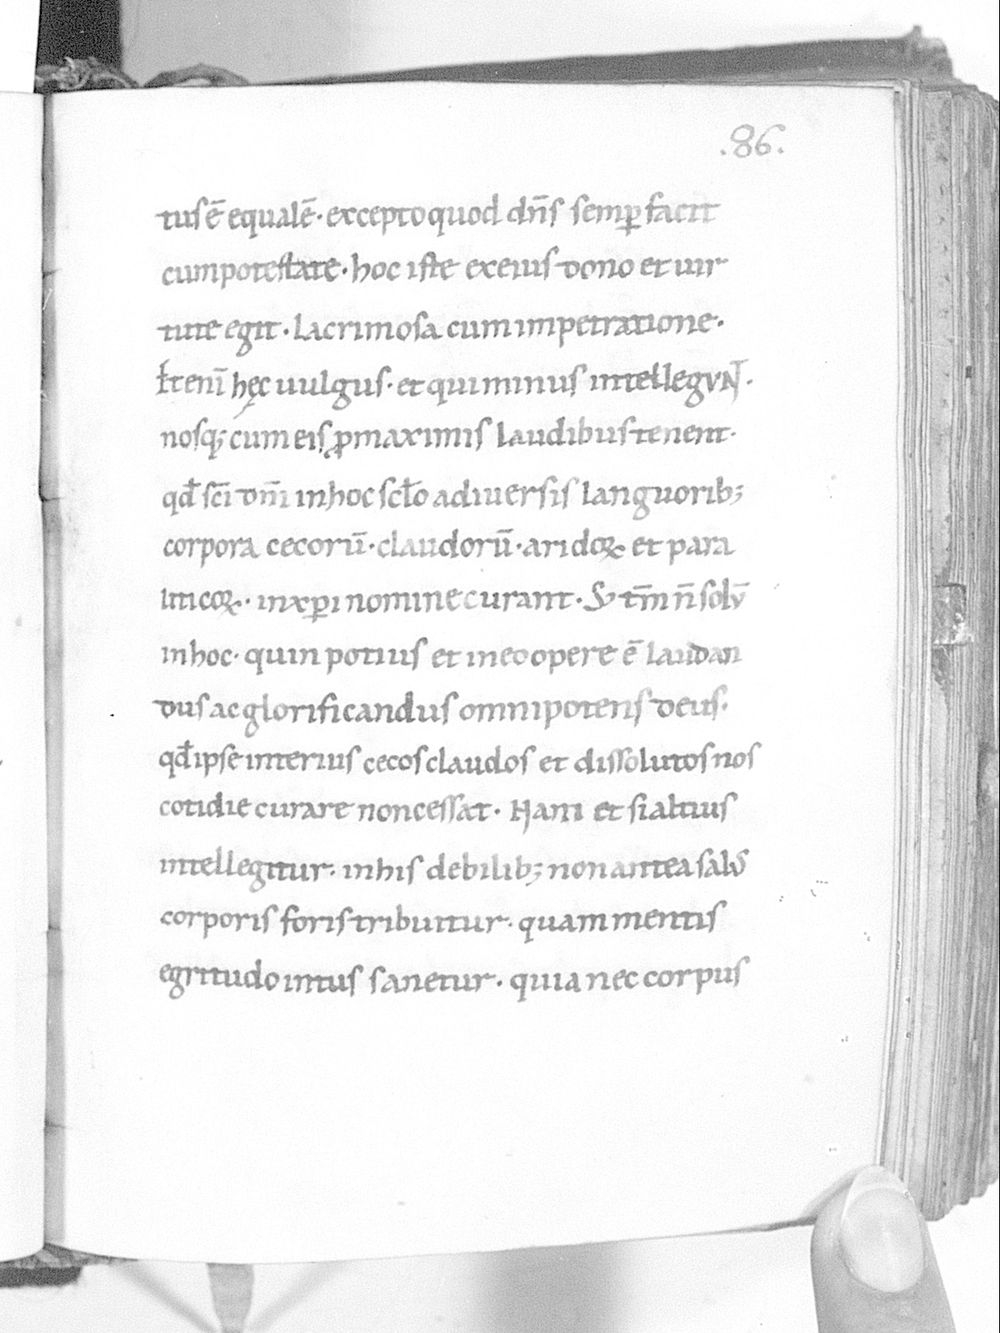 .86.
tus ē equalē · excepto quod dn̄s semꝑ facit
cum potestate · hoc iste ex eius dono et uir
tute egit · lacrimosa cum impetratione ·
hęc uulgus · et qui minus intellegUNT ·
nosq; cum eis ꝓ maximis laudibus tenent ·
qđ sc̄i dn̄i in hoc scło a diuersis languorib;
corpora cecorū · claudorū · aridoꝝ et para
liticoꝝ · in xp̄i nomine curant · S; tm̄ n̄ solū
in hoc · quin potius et in eo opere ē laudan
dus ac glorificandus omnipotens deus ·
qđ ipse interius cecos claudos et dissolutos nos
cotidie curare non cessat · Nam et si altius
intellegitur · in his debilib; non antea salus
corporis foris tribuitur · quam mentis
egritudo intus sanetur · quia nec corpus